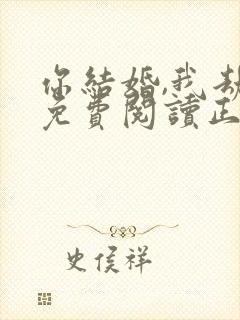 你結婚,我劫
免費閱讀正
史侯祥